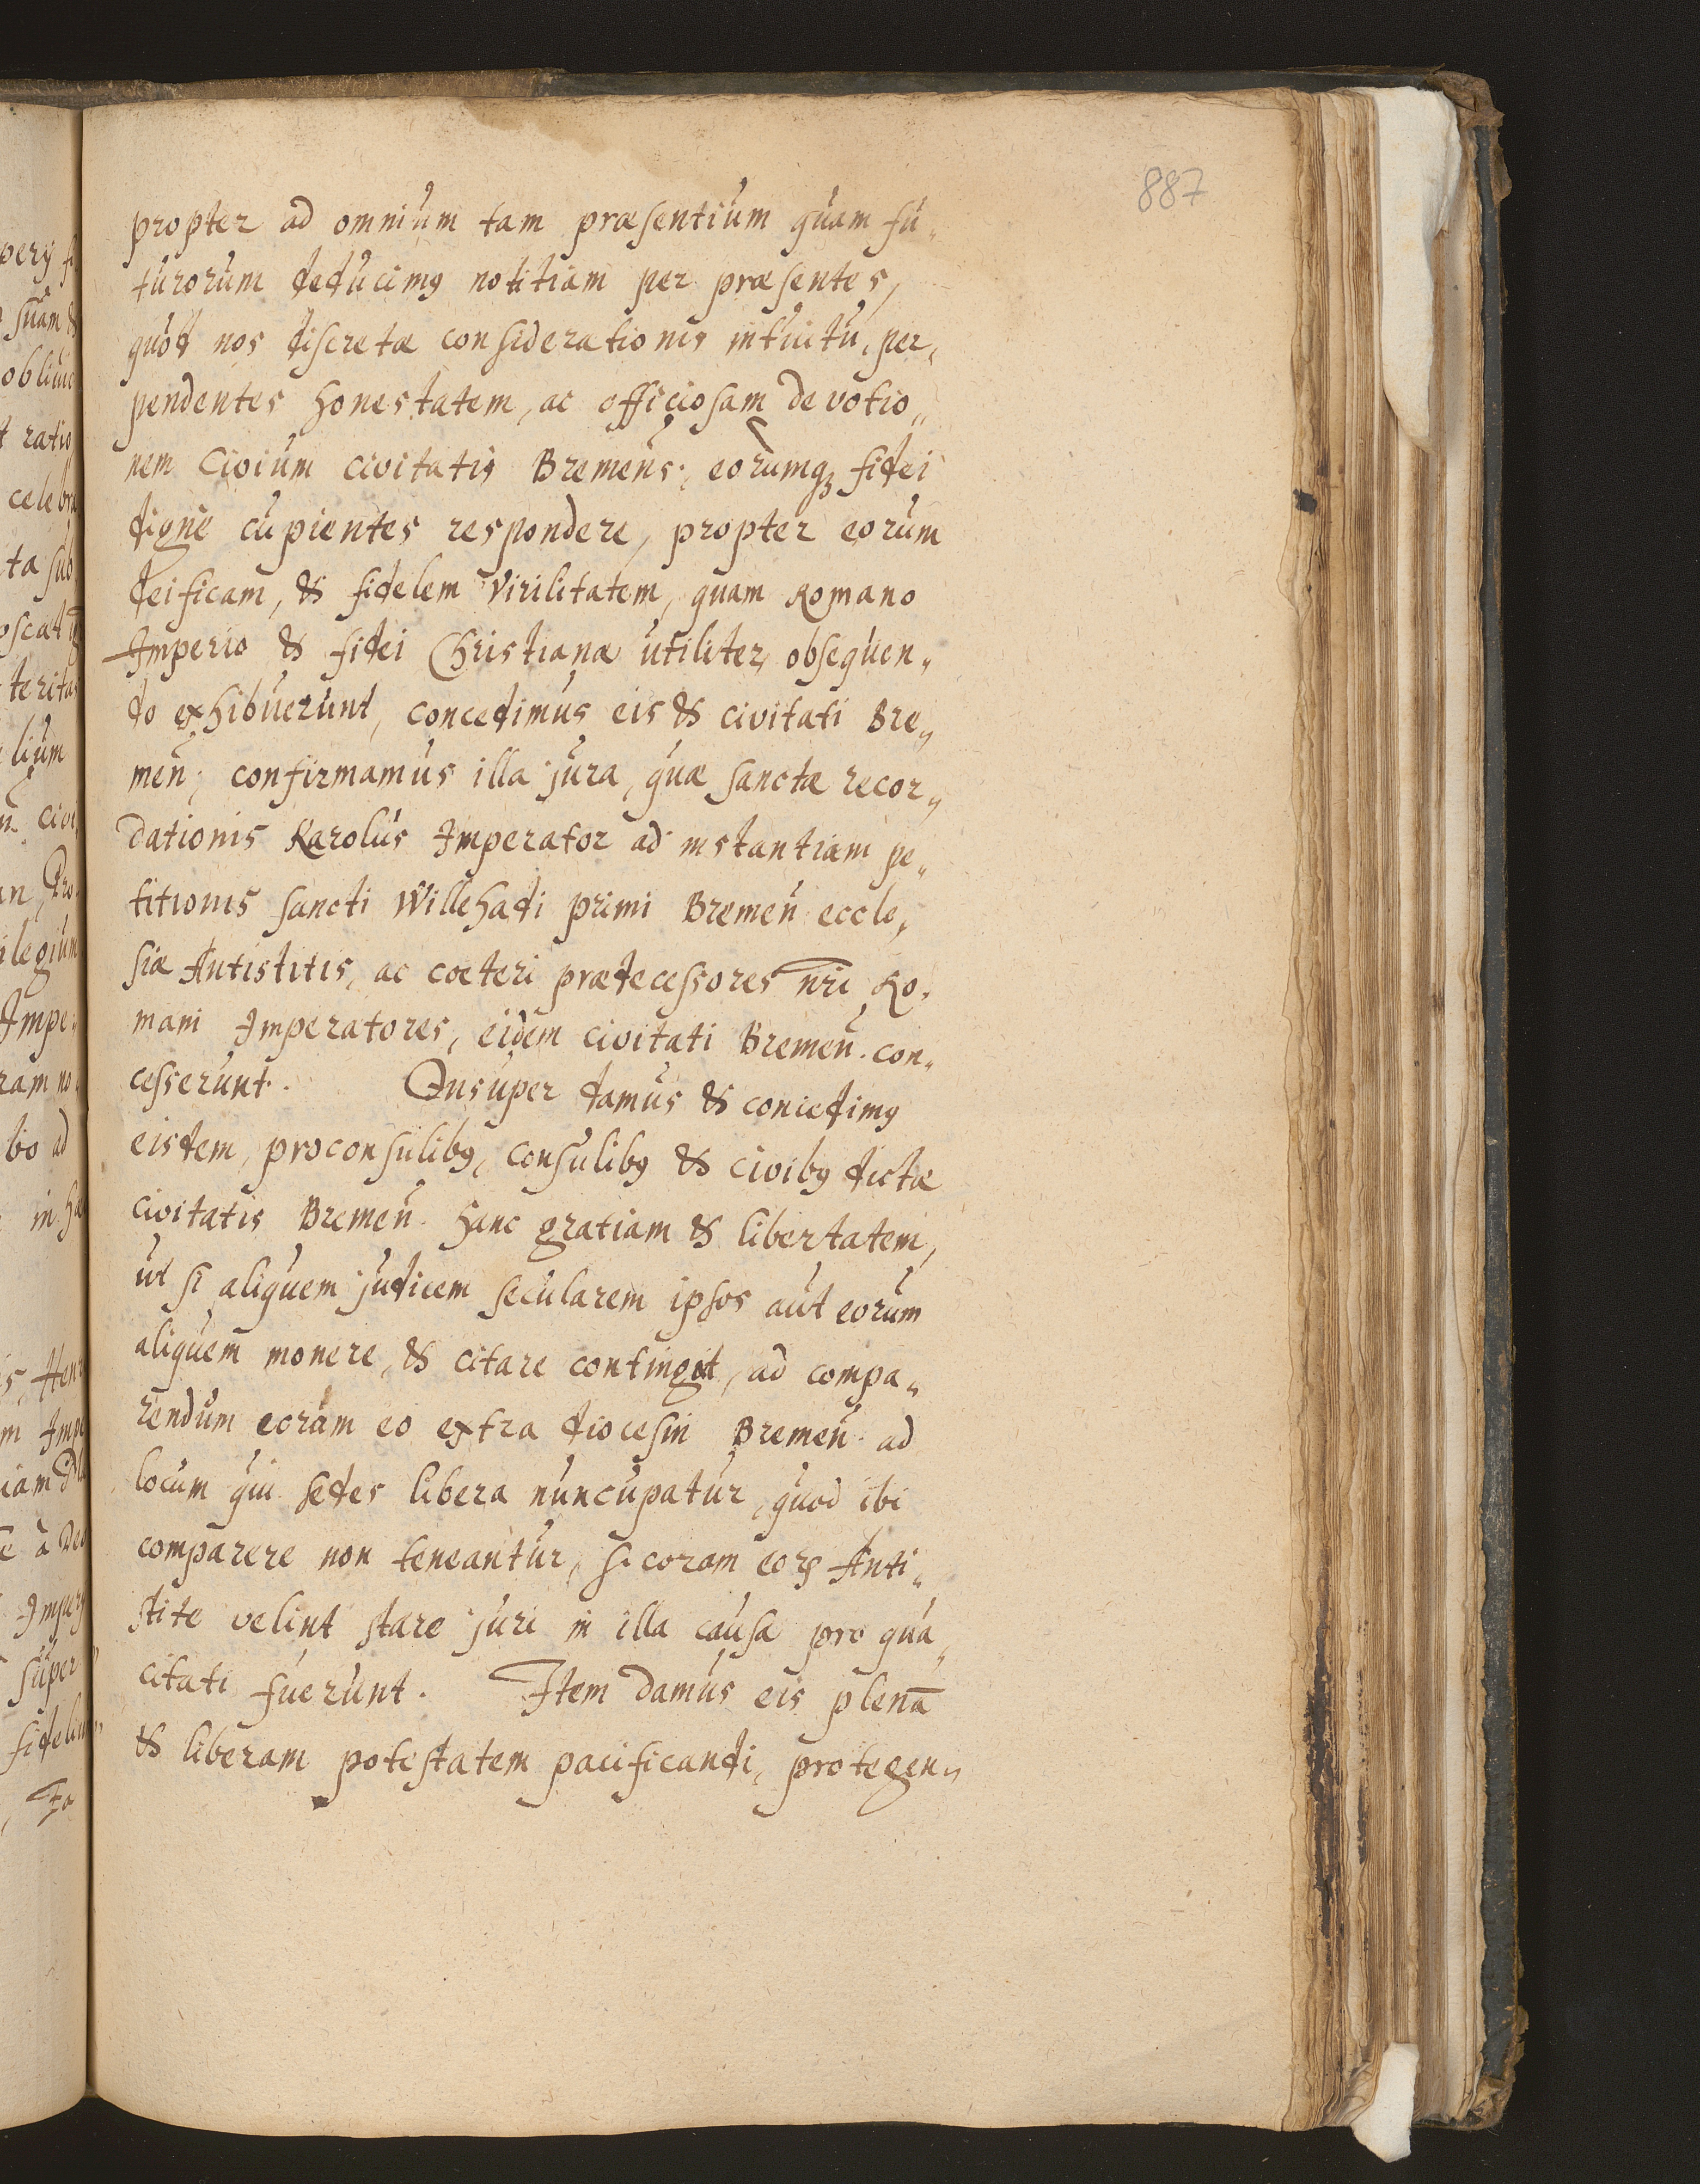 887
propter ad omnium tam præsentium quam fu„
turorum deducimꝰ notitiam per præsentes,
quod nos discretæ considerationis intuitu, per„
pendentes honestatem, ac officiosam devotio„
nem Civium civitatis Bremens: eorumq̃ fidei
digne cupientes respondere, propter eorum
deificam, & fidelem virilitatem, quam Romano
Imperio & fidei Christianæ utiliter, obsequen„
do exhibuerunt, concedimus eis & civitati Bre„
men̄; confirmamus illa jura, quæ sanctæ recor„
dationis Karolus Imperator ad instantiam pe„
titionis sancti Willehadi primi Bremen̄ eccle„
siæ Antistitis, ac cœteri prædecessores nr̄i Ro„
mani Imperatores, eidem civitati Bremen̄. con„
cesserunt. Insuper damus & concedimꝰ
eisdem, proconsulibꝰ, consulibꝰ & civibꝰ dictæ
civitatis Bremen̄. hanc gratiam & libertatem,
ut si aliquem judicem secularem ipsos aut eorum
aliquem monere, & citare contingat, ad compa„
rendum eorum eo extra diocesin Bremen̄. ad
locum qui sedes libera nuncupatur, quod ibi
comparere non teneantur, si coram eoꝝ Anti„
stite velint stare juri in illa causa pro qua„
citati fuerunt. Item damus eis plenā
& liberam potestatem pacificandi, protegen„